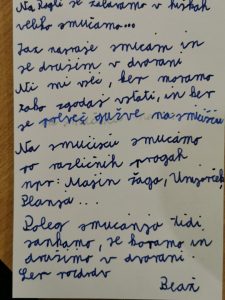 Na Rogli se zabavamo v hiškah
veliko smučamo...
Jaz najraje smučam in
se družim v dvorani
Ni mi všeč, ker moramo
zelo zgodaj vstati, in ker
se preveč gužve na smučišču
Na smučišču smučamo
po različnih progah
npr: Mašin žaga, Uniorček,
Planja...
Poleg smučanja tudi
sankamo, se boramo in
družimo v dvorani.
Lep pozdrav
Blaž